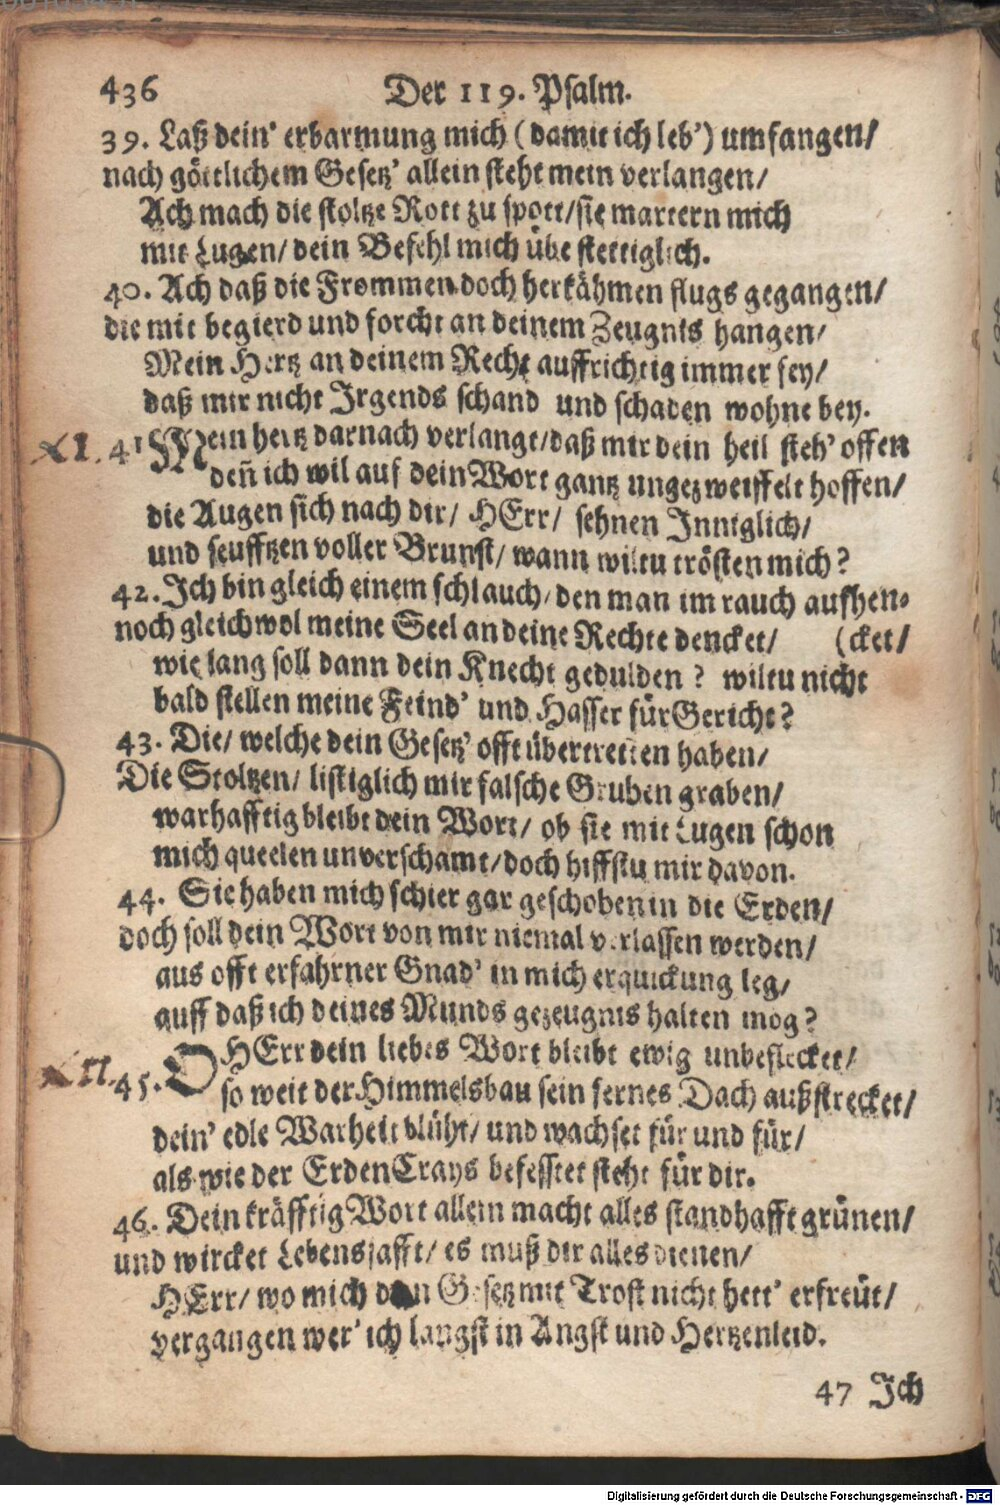 436 Der 119. Psalm.
39. Laß dein' erbarmung mich (damit ich leb') umfangen/
nach göttlichem Gesetz' allein steht mein verlangen/
Ach mach die stoltze Rott zu spott/sie martern mich
mit Lugen/ dein Befehl mich übe stettiglich.
40. Ach daß die Frommen doch herkähmen flugs gegangen/
die mit begierd und forcht an deinem Zeugnis hangen/
Mein Hertz an deinem Recht auffrichtig immer sey/
daß mir nicht Jrgends schand und schaden wohne bey.
XI. 41 Mein hertz darnach verlangt/daß mir dein heil steh' offen
den̄ ich wil auf dein Wort gantz ungezweiffelt hoffen/
die Augen sich nach dir/ HErr/ sehnen Jnniglich/
und seufftzen voller Brunst/ wann wiltu trösten mich?
42. Jch bin gleich einem schlauch/ den man im rauch aufhen-
noch gleichwol meine Seel an deine Rechte dencket/ (cket/
wie lang soll dann dein Knecht gedulden? wiltu nicht
bald stellen meine Feind' und Hasser für Gericht?
43. Die/ welche dein Gesetz' offt übertretten haben/
Die Stoltzen/ listiglich mir falsche Gruben graben/
warhafftig bleibt dein Wort/ ob sie mit Lugen schon
mich queelen unverschamt/doch hiffstu mir davon.
44. Sie haben mich schier gar geschoben in die Erden/
doch soll dein Wort von mir niemal verlassen werden/
aus offt erfahrner Gnad' in mich erquickung leg/
auff daß ich deines Munds gezeugnis halten mog?
XII. 45. O HErr dein liebes Wort bleibt ewig unbeflecket/
so weit der Himmelsbau sein fernes Dach außstrecket/
dein' edle Warheit blüht/ und wachset für und für/
als wie der Erden Crays befesstet steht für dir.
46. Dein kräfftig Wort allein macht alles standhafft grünen/
und wircket Lebenssafft/ es muß dir alles dienen/
HErr/ wo mich dein Gesetz mit Trost nicht hett' erfreüt/
vergangen wer' ich langst in Angst und Hertzenleid.
47 Jch
Digitalisierung gefördert durch die Deutsche Forschungsgemeinschaft - DFG